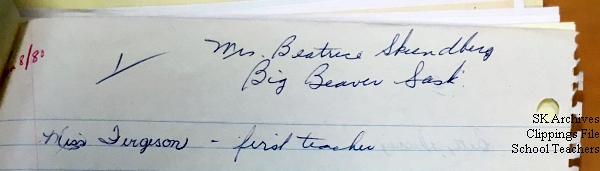 8/80
Mrs. Beatrice Skundberg
Big Beaver Sask.
Miss Furgeson - first teacher
SK Archives
Clippings File
School Teachers